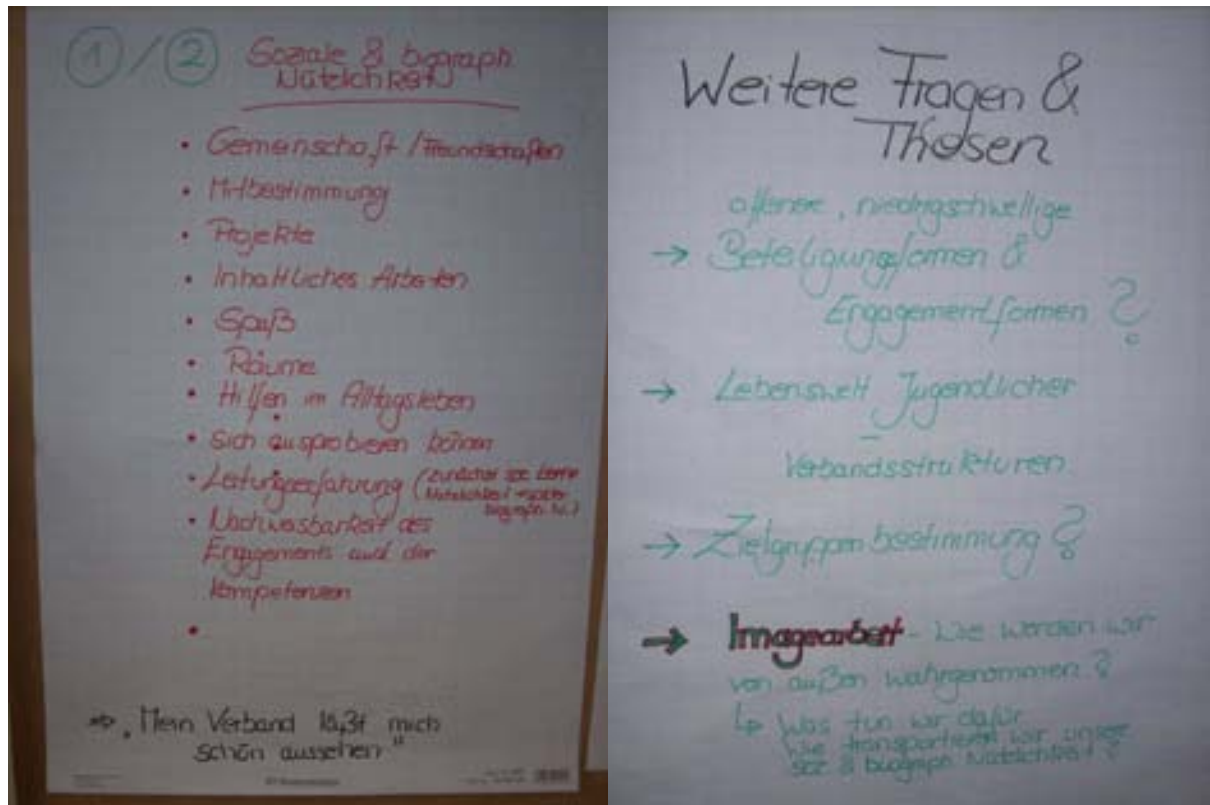 1 / 2 Soziale & biograph.
Nützlichkeit
• Gemeinschaft / Freundschaften
• Mitbestimmung
• Projekte
• Inhaltliches Arbeiten
• Spaß
• Räume
• Hilfen im Alltagsleben
• Sich ausprobieren können
• Leitungserfahrung (zunächst soz.
Nützlichkeit
biograph. N.)
• Nachweisbarkeit des
Engagements und der
Kompetenzen
•
⇒ „Mein Verband läßt mich
schön aussehen"
Weitere Fragen &
Thesen
offene, niedrigschwellige
→ Beteiligungsformen &
Engagementformen ?
→ Lebenswelt Jugendlicher
–
Verbandsstrukturen
→ Zielgruppenbestimmung ?
→ Imagearbeit - Wie werden wir
von außen wahrgenommen ?
↳ Was tun wir dafür
Wie transportieren wir unsere
soz & biograph Nützlichkeit ?